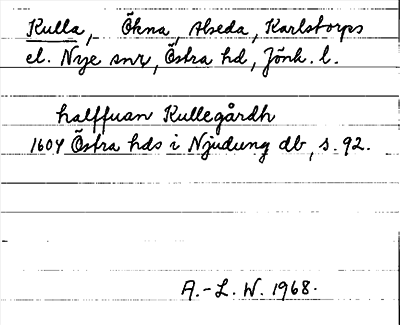 Kulla, Ökna, Alseda, Karlstorps
el. Nye snr, Östra hd, Jönk. l.
halffuan Kullegårdh
1604 Östra hds i Njudung db, s. 92.
A.-L. W. 1968.